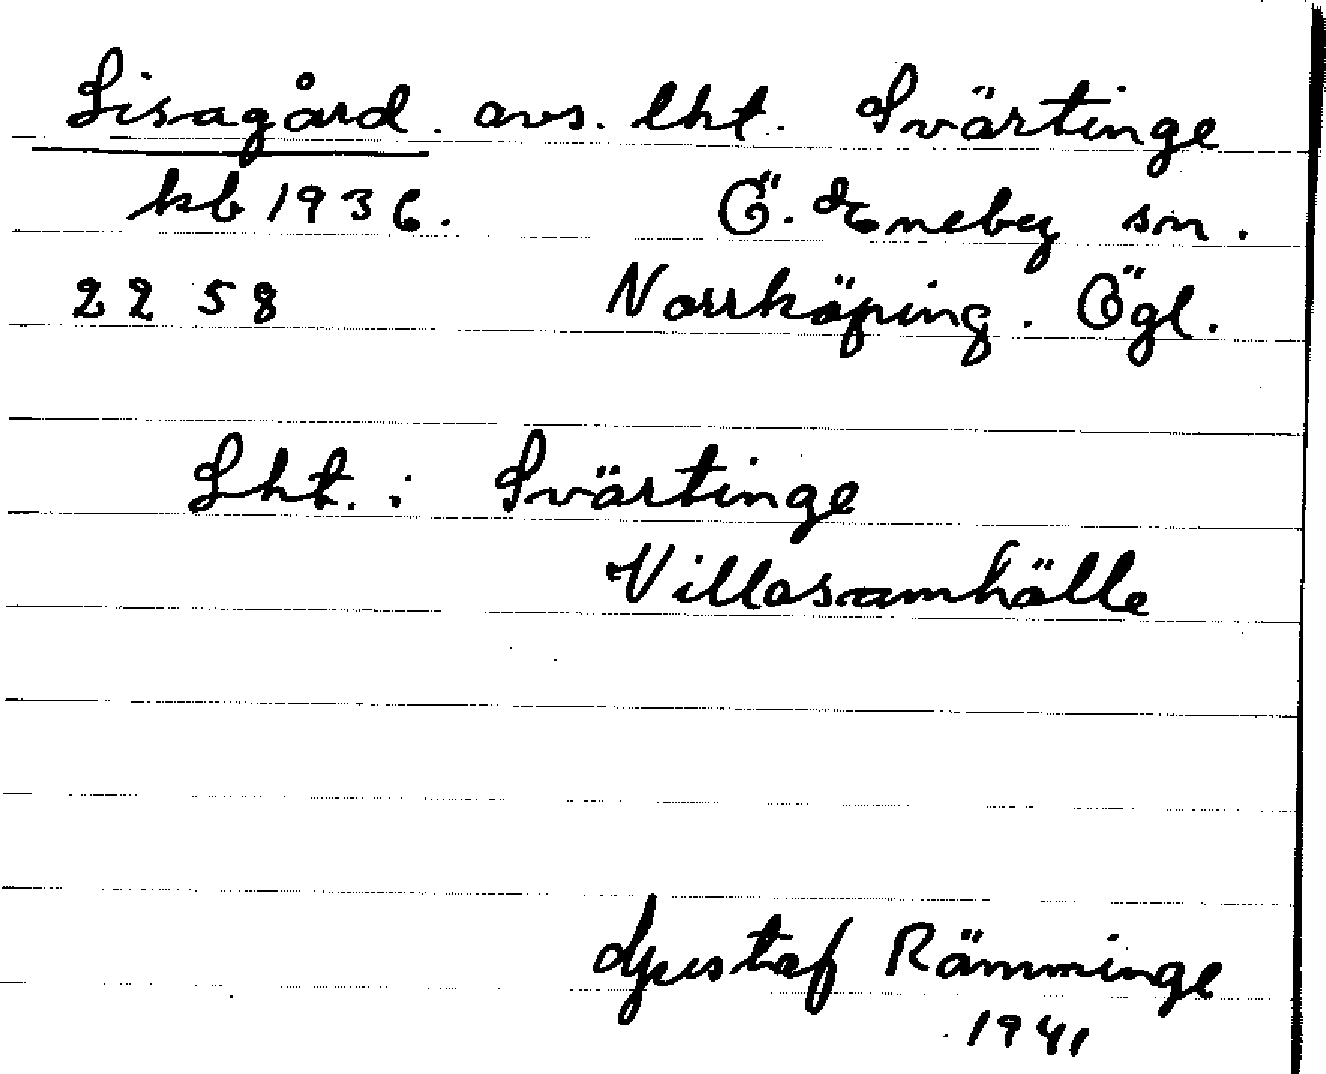 Lisagård. avs. lht. Svärtinge
kb 1936. Ö. Eneby sn.
22 58 Norrköping. Ögl.
Lht. : Svärtinge
Villasamhälle
Gustaf Rämminge
1941